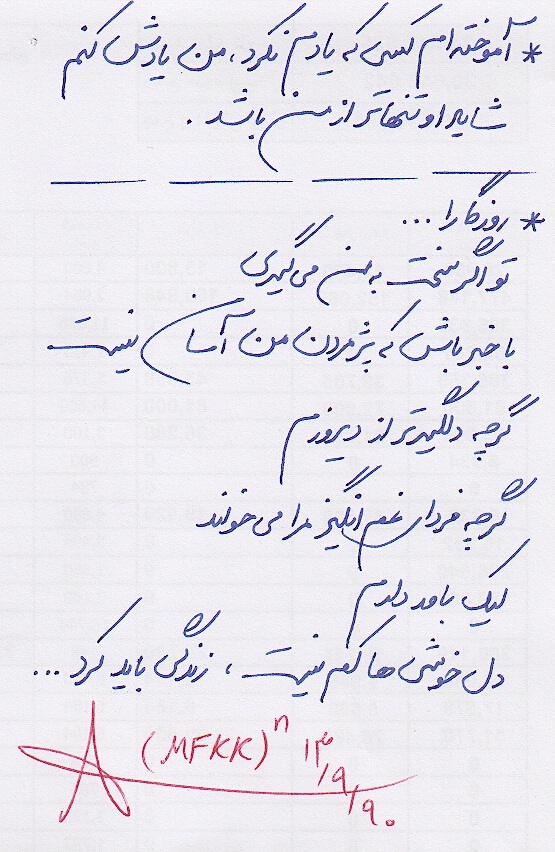 * آموخته ام کسی که یادم نکرد، من یادش کنم
شاید او تنهاتر از من باشد.
* روزگارا ...
تو اگر سخت به من می گیری
با خبر باش که پژمردن من آسان نیست
گرچه دلگیرتر از دیروزم
گرچه فردای غم انگیز مرا می خواند
لیک باور دارم
دل خوشی ها کم نیست، زندگی باید کرد ...
(MFKK)ⁿ ۱۳/۹/۹۰